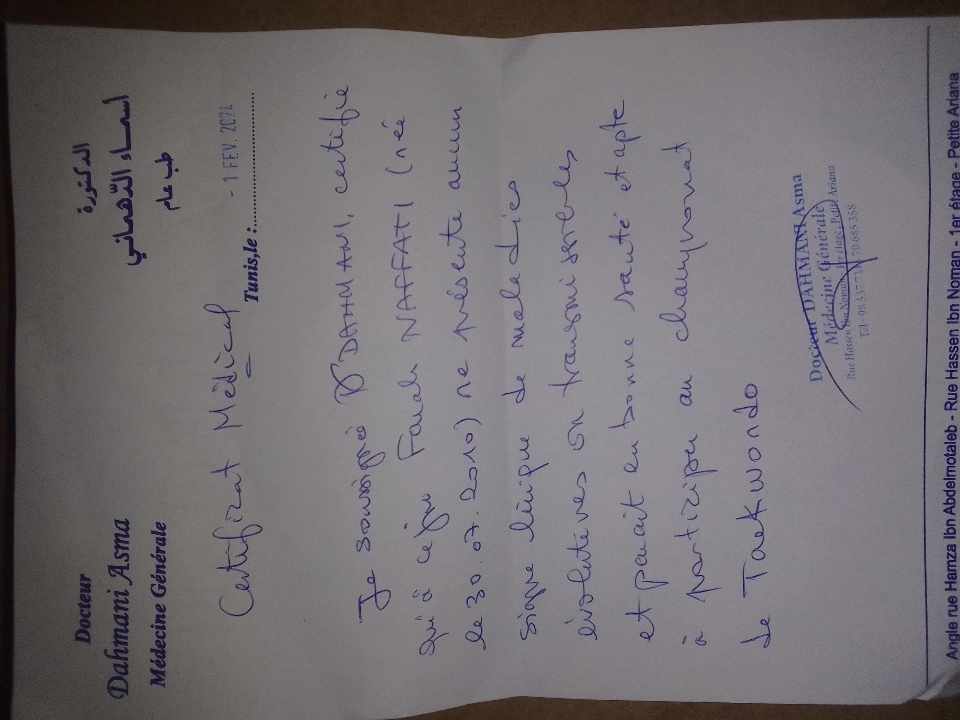 Docteur
Dahmani Asma
Médecine Générale
الدكتورة
اسماء الدّهماني
طب عام
Certificat Médical
Tunis,le :
- 1 FEV. 2024
Je soussigné Dr DAHMANI, certifie
qu'à ce jour Farah NAFFATI (née
le 30.07.2010) ne présente aucun
signe clinique de maladies
évolutives ou transmissibles
et parait en bonne santé et apte
à participer au championnat
de Taekwondo
Docteur DAHMANI Asma
Médecine Générale
Rue Hassen Ibn Noman 1er étage Petite Ariana
Tél :
Angle rue Hamza Ibn Abdelmotaleb - Rue Hassen Ibn Noman - 1er étage - Petite Ariana